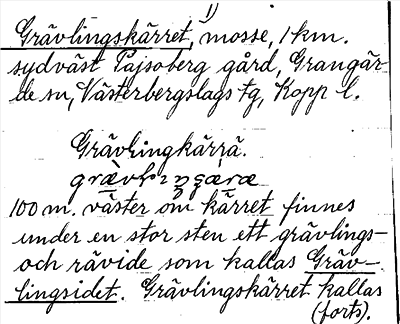 1)
Grävlingskärret, mosse, 1 km.
sydväst Pajsoberg gård, Grangär
de sn, Västerbergslags tg, Kopp l.
Grävlingkärrä.
100 m. väster om kärret finnes
under en stor sten ett grävlings-
och rävide som kallas Gräv-
lingsidet. Grävlingskärret kallas
(forts).